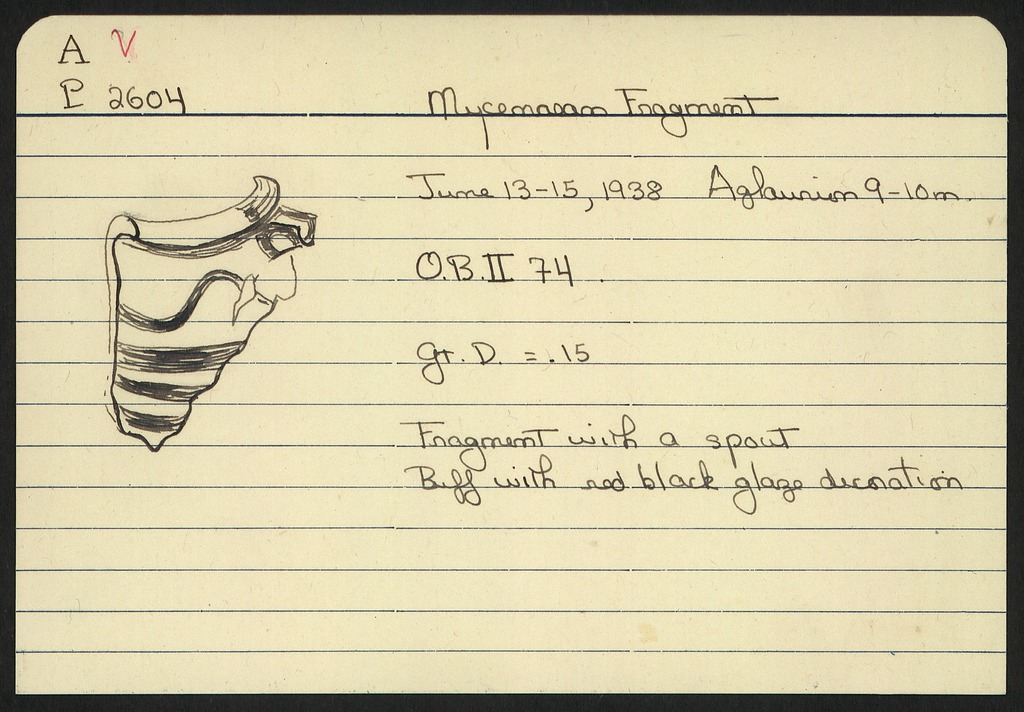 A V
P 2604
Mycenaean Fragment
June 13-15, 1938 Aglaurion 9-10m.
O.B.II 74.
Gr. D. = .15
Fragment with a spout
Buff with red black glaze decoration